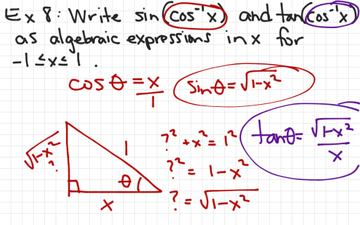 Ex 8: Write sin(cos⁻¹x) and tan(cos⁻¹x)
as algebraic expressions in x for
-1 ≤ x ≤ 1.
cosθ = x/1
sinθ = √(1-x²)
√(1-x²)
?
1
θ
x
?² + x² = 1²
?² = 1 - x²
? = √(1-x²)
tanθ = √(1-x²)/x